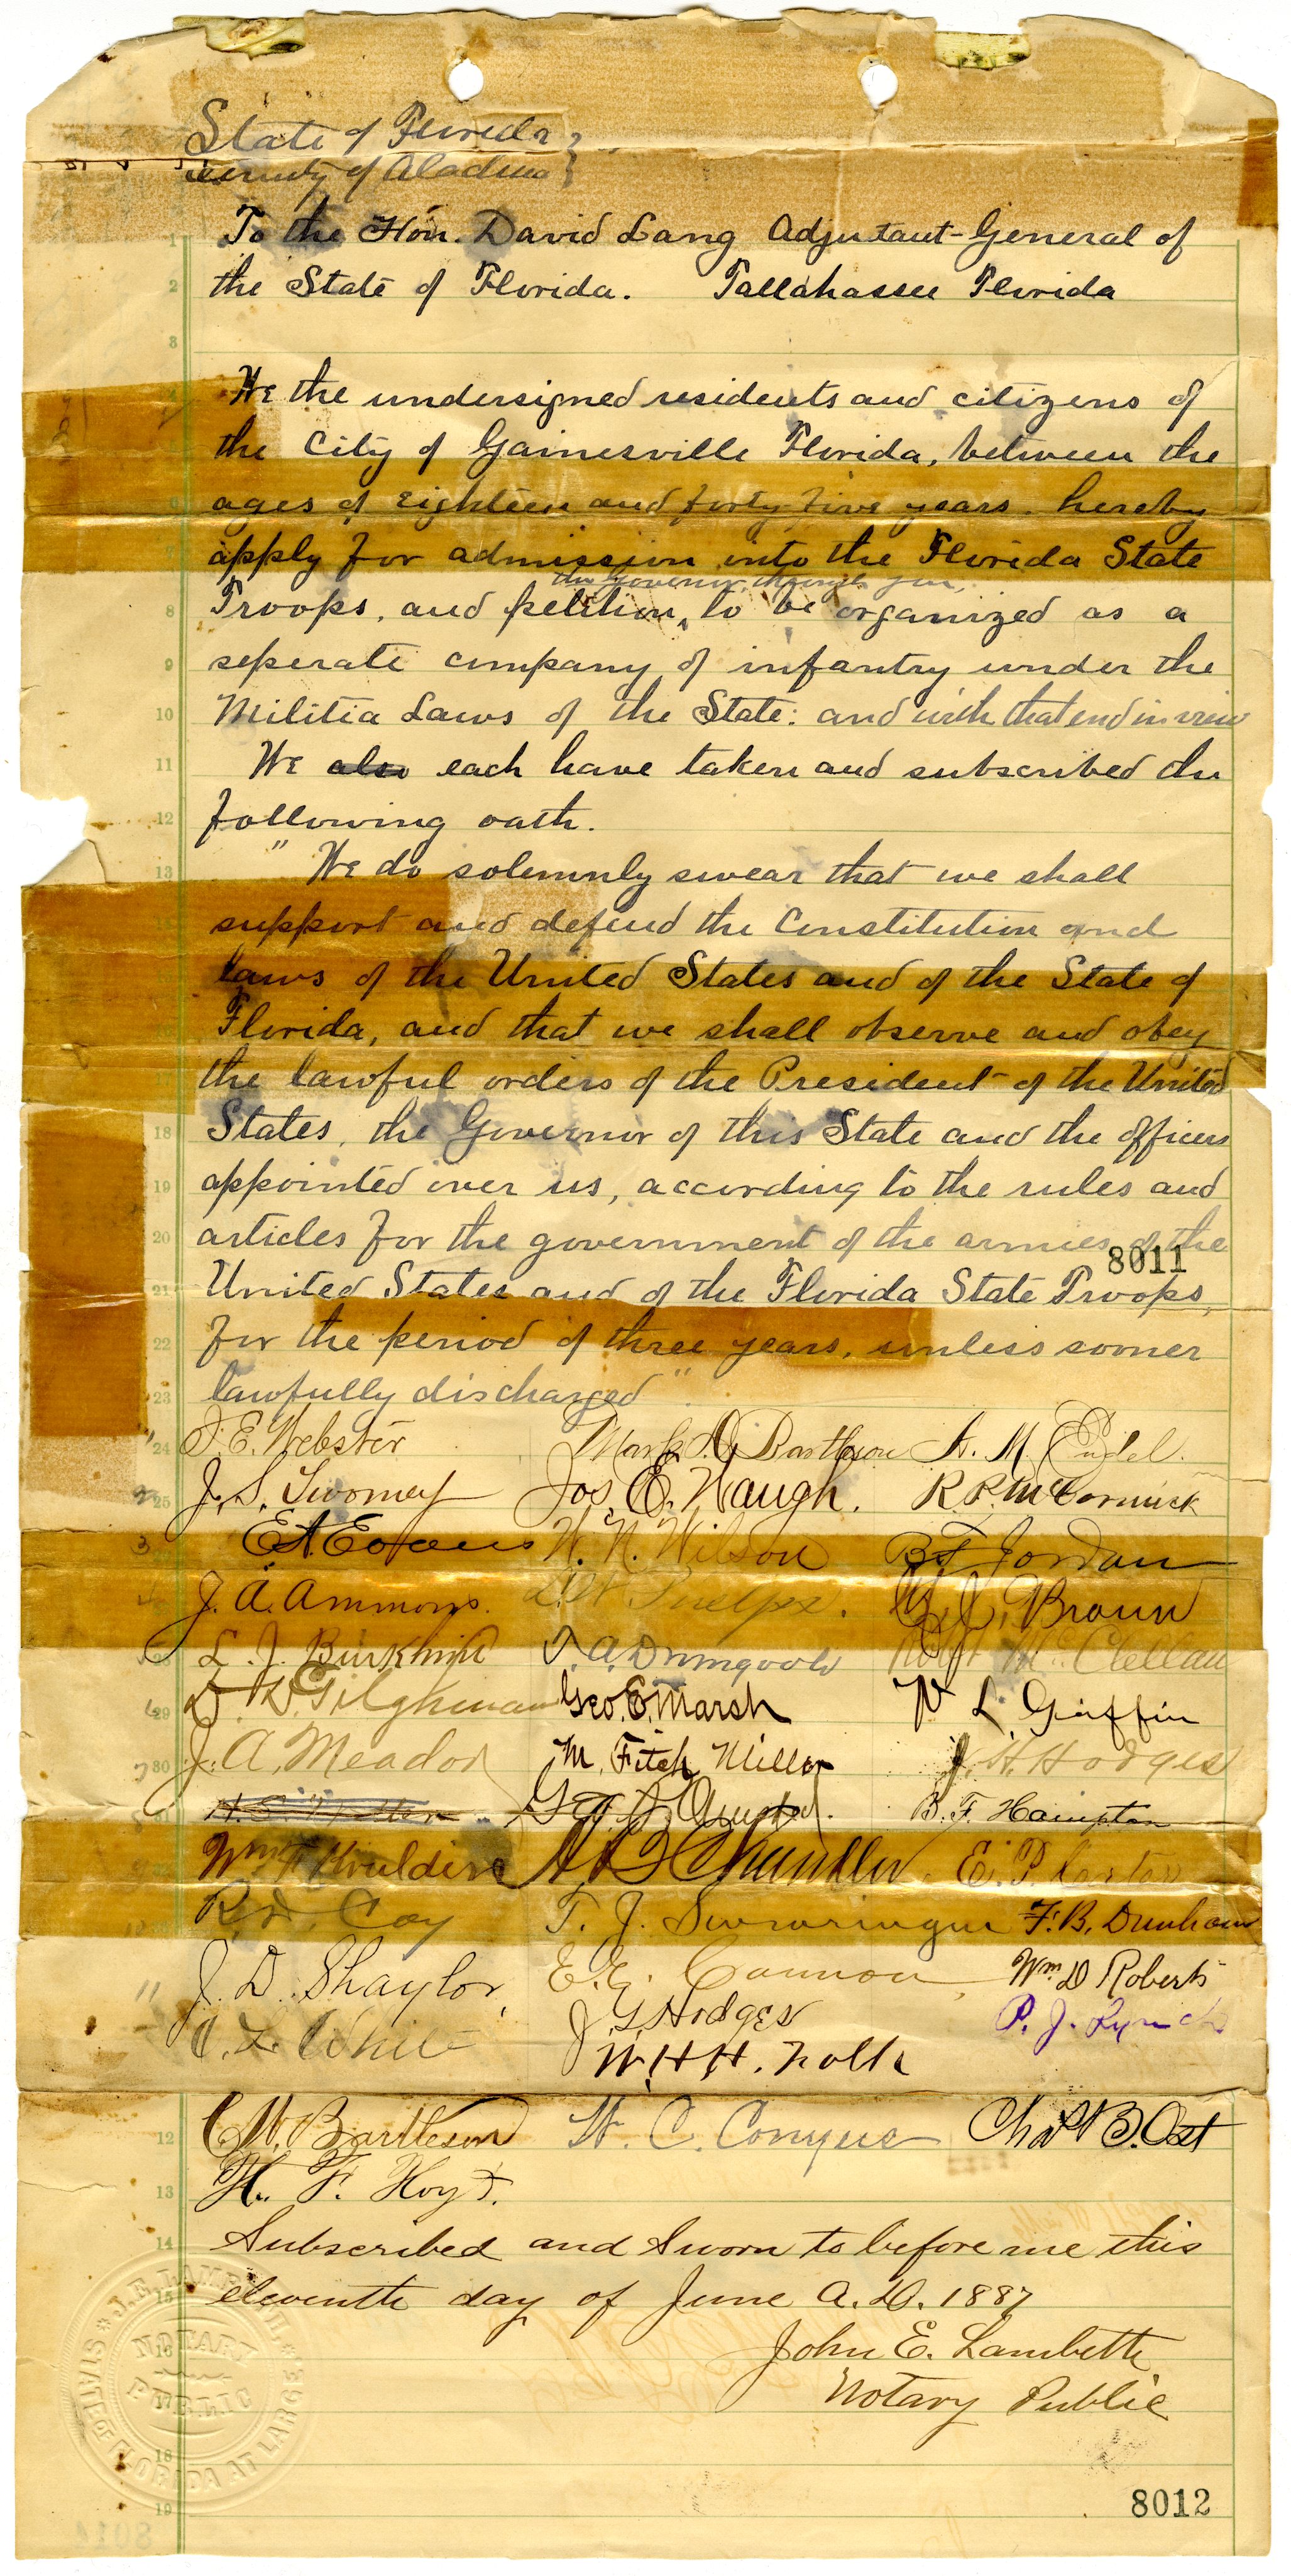 State of Florida }
County of Alachua }
To the Hon. David Lang Adjutant-General of
the State of Florida. Tallahassee Florida
We the undersigned residents and citizens of
the City of Gainesville Florida, between the
ages of eighteen and forty five years. hereby
apply for admission into the Florida State
the Governor, through you,
Troops, and petition, to be organized as a
seperate company of infantry under the
Militia Laws of the State: and with that end in view
We also each have taken and subscribed the
following oath.
" We do solemnly swear that we shall
support and defend the Constitution and
laws of the United States and of the State of
Florida, and that we shall observe and obey
the lawful orders of the President of the United
States, the Governor of this State and the officers
appointed over us, according to the rules and
articles for the government of the armies of the
8011
United States and of the Florida State Troops,
for the period of three years, unless sooner
lawfully discharged".
J. E. Webster Mark D. Bartleson A. M. Endel.
J. S. Twomey Jos. E. Waugh. R. P. McCormick
E. A. Evans W. N. Wilson B F Jordan
J. A. Ammons. Phelps. J. Brown
L. J. Burkhim J. A. Dromgoole Robt McClellan
D. Tilghman Geo. E. Marsh W L Griffin
J. A. Meador M. Fitch Miller J. H. Hodges
Geo. B. F. Hampton
Wm F Moulding A B Chandler. E. P. Carter
R. D. Coy T. J. Swearingin F. B. Dunham
J. D. Shaylor, E. G. Cannon Wm D Roberts
White J. G. Hodges P. J. Lynch
W. H. H. Nolle
C. W. Bartleson W. C. Conyers Chas B. Ost
H. F. Hoyt.
Subscribed and Sworn to before me this
eleventh day of June A. D. 1887
John E. Lambeth
Notary Public
NOTARY
PUBLIC
STATE OF FLORIDA AT LARGE
8012